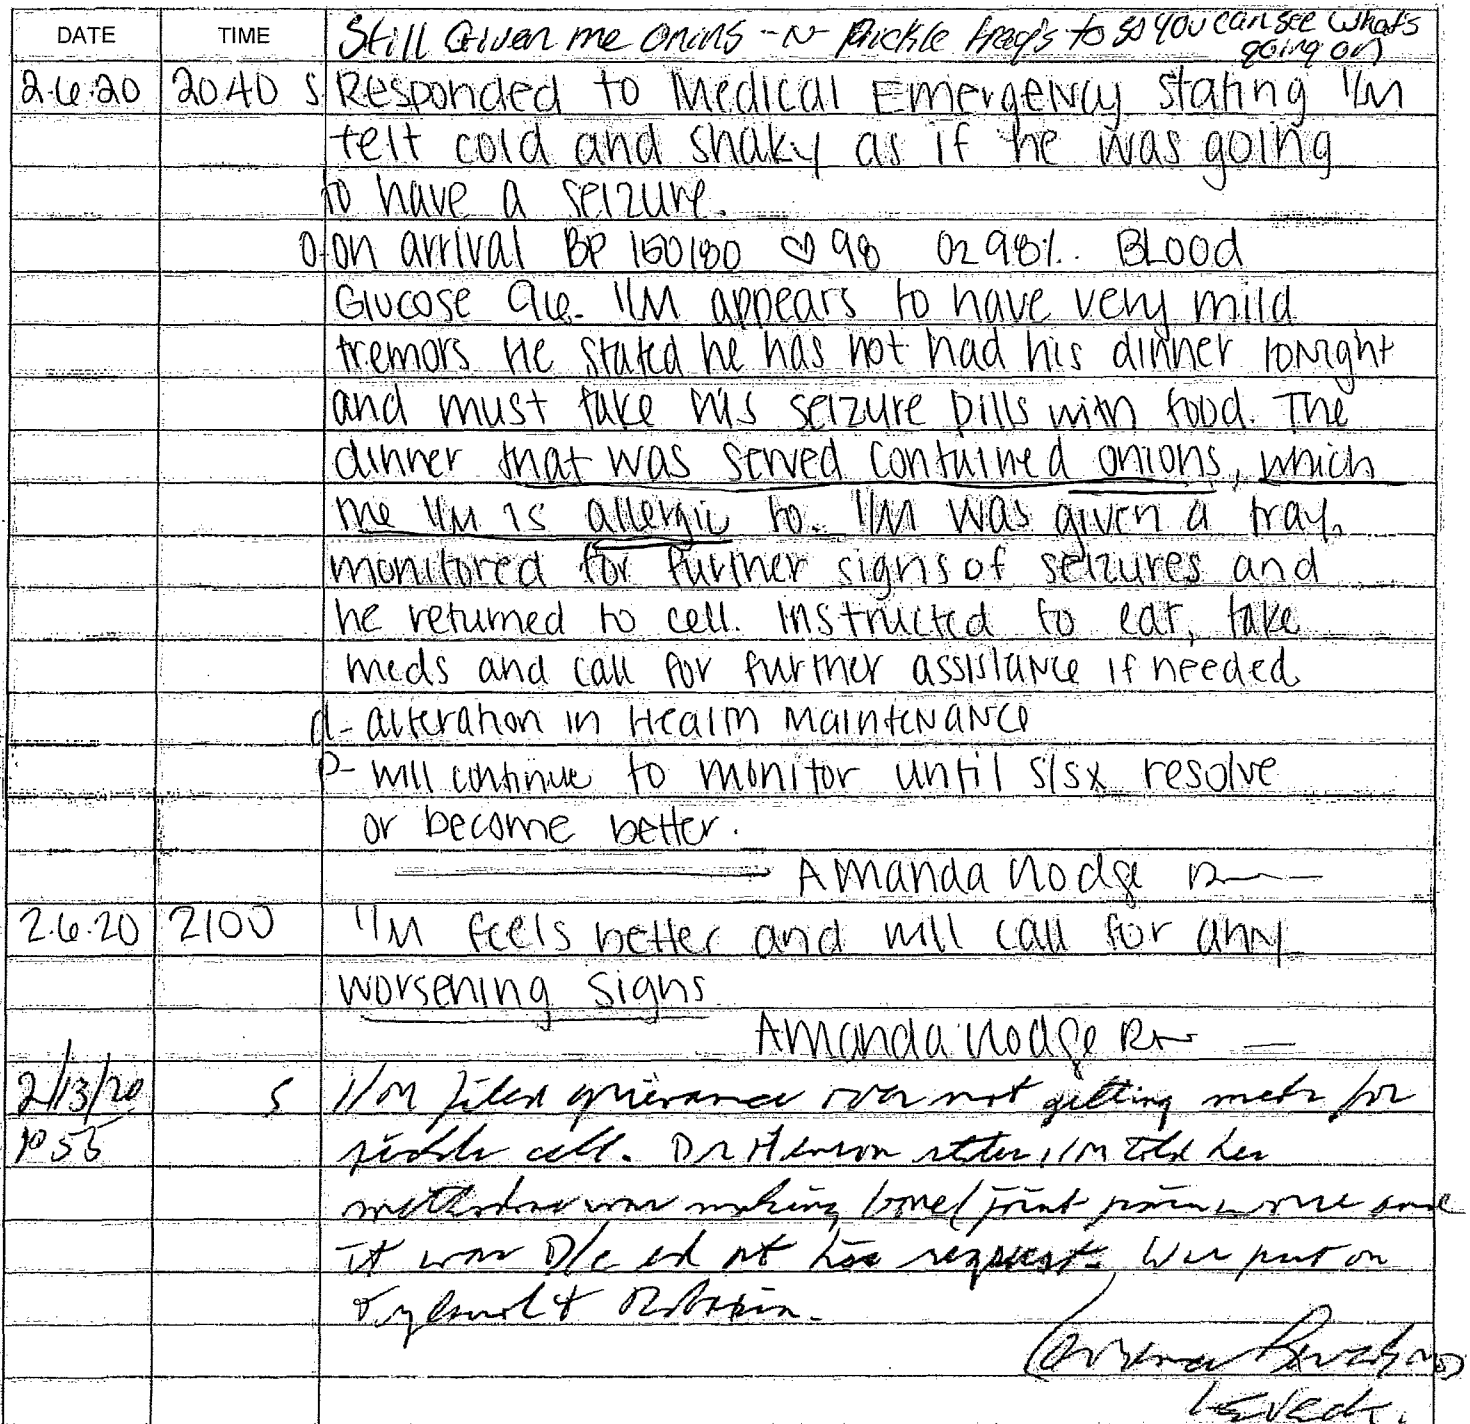 DATE TIME Still Given me onins -N- Pickle trays to so you can see what's
going on
2.6.20 2040 S Responded to Medical Emergency stating I/M
felt cold and shaky as if he was going
to have a seizure.
O on arrival BP 160/80 ♡ 98 O2 98%. Blood
Glucose 96. I/M appears to have very mild
tremors He stated he has not had his dinner tonight
and must take his seizure pills with food. The
dinner that was served contained onions, which
the I/M is allergic to. I/M was given a tray,
monitored for further signs of seizures and
he returned to cell. Instructed to eat, take
meds and call for further assistance if needed
a- alteration in Health Maintenance
P- will continue to monitor until s/sx resolve
or become better.
Amanda Hodge
2.6.20 2100 I/M feels better and will call for any
worsening signs
Amanda Hodge RN
2/13/20 S I/M filed grievance over not getting meds for
1055 sickle cell. Dr Henson states I/M told her
methadone was making bone/joint pain worse and
it was D/c ed at his request. Was put on
Tylenol + Robaxin.